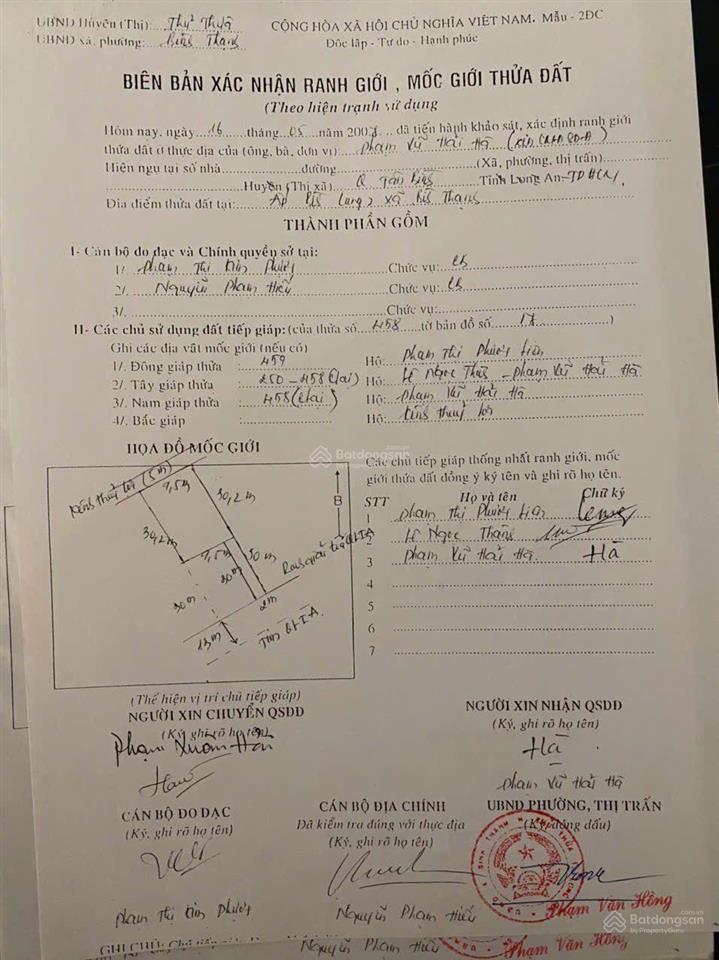 UBND Huyện (Thị): Thủ Thừa
UBND xã, phường: Bình Thạnh
CỘNG HÒA XÃ HỘI CHỦ NGHĨA VIỆT NAM. Mẫu - 2ĐC
Độc lập - Tự do - Hạnh phúc
BIÊN BẢN XÁC NHẬN RANH GIỚI, MỐC GIỚI THỬA ĐẤT
(Theo hiện trạng sử dụng
Hôm nay, ngày 16 tháng 05 năm 200 đã tiến hành khảo sát, xác định ranh giới
thửa đất ở thực địa của (ông, bà, đơn vị): Phạm Vũ Hải Hà
Hiện ngụ tại số nhà đường (Xã, phường, thị trấn):
Huyện (Thị xã) Q Tân Bình Tỉnh Long An - TPHCM
Địa điểm thửa đất tại: Ấp Bình Lương 2 xã Bình Thạnh
THÀNH PHẦN GỒM
I- Cán bộ đo đạc và Chính quyền sở tại:
1/ Phạm Thị Kim Phượng Chức vụ: CB
2/. Nguyễn Phạm Hiếu Chức vụ: CB
3/. Chức vụ:
II- Các chủ sử dụng đất tiếp giáp: (của thửa số 458 tờ bản đồ số 17)
Ghi các địa vật mốc giới (nếu có)
1/. Đông giáp thửa : 459 Hộ: Phạm Thị Phương Liên
2/. Tây giáp thửa : 450 - 458 (lại) Hộ: Lê Ngọc Thắng - Phạm Vũ Hải Hà
3/. Nam giáp thửa : 458 (lại) Hộ: Phạm Vũ Hải Hà
4/. Bắc giáp : Hộ: Kênh thuỷ lợi
HỌA ĐỒ MỐC GIỚI
Kênh thuỷ lợi (5m)
7,5m
30,2m
30,2m
7,5m
30m
30m
30m
Ranh giải toả QL1A
2m
13m
Tim QL1A
B
Các chủ tiếp giáp thống nhất ranh giới, mốc
giới thửa đất đồng ý ký tên và ghi rõ họ tên.
STT Họ và tên Chữ ký
1 Phạm Thị Phương Liên
2 Lê Ngọc Thắng
3 Phạm Vũ Hải Hà Hà
4
5
6
7
(Thể hiện vị trí chủ tiếp giáp)
NGƯỜI XIN CHUYỂN QSDĐ
(Ký, ghi rõ họ tên)
Phạm Xuân Hân
NGƯỜI XIN NHẬN QSDĐ
(Ký, ghi rõ họ tên)
Hà
Phạm Vũ Hải Hà
CÁN BỘ ĐO ĐẠC
(Ký, ghi rõ họ tên)
Phạm Thị Kim Phượng
CÁN BỘ ĐỊA CHÍNH
Đã kiểm tra đúng với thực địa
(Ký, ghi rõ họ tên)
Nguyễn Phạm Hiếu
UBND PHƯỜNG, THỊ TRẤN
(Ký, đóng dấu)
Phạm Văn Hồng
GHI CHÚ:
Nguyễn Phạm Hiếu
Phạm Văn Hồng
Batdongsan
by PropertyGuru
Batdongsan
by PropertyGuru